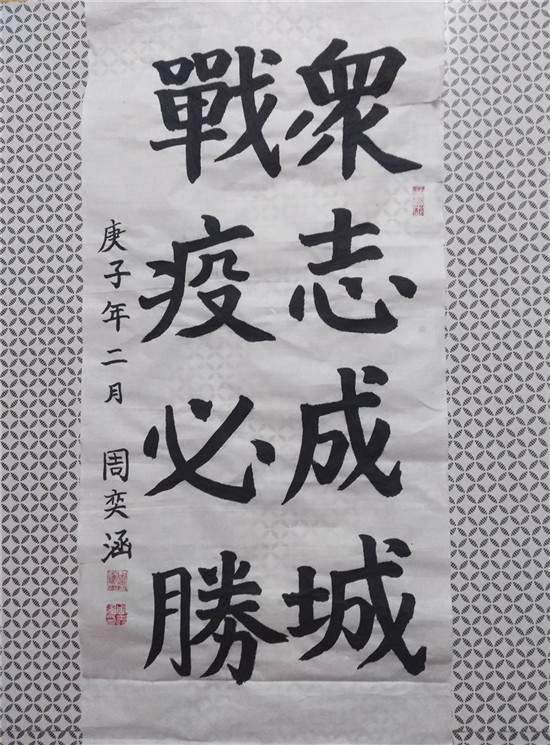 眾志成城
戰疫必勝
庚子年二月 周奕涵